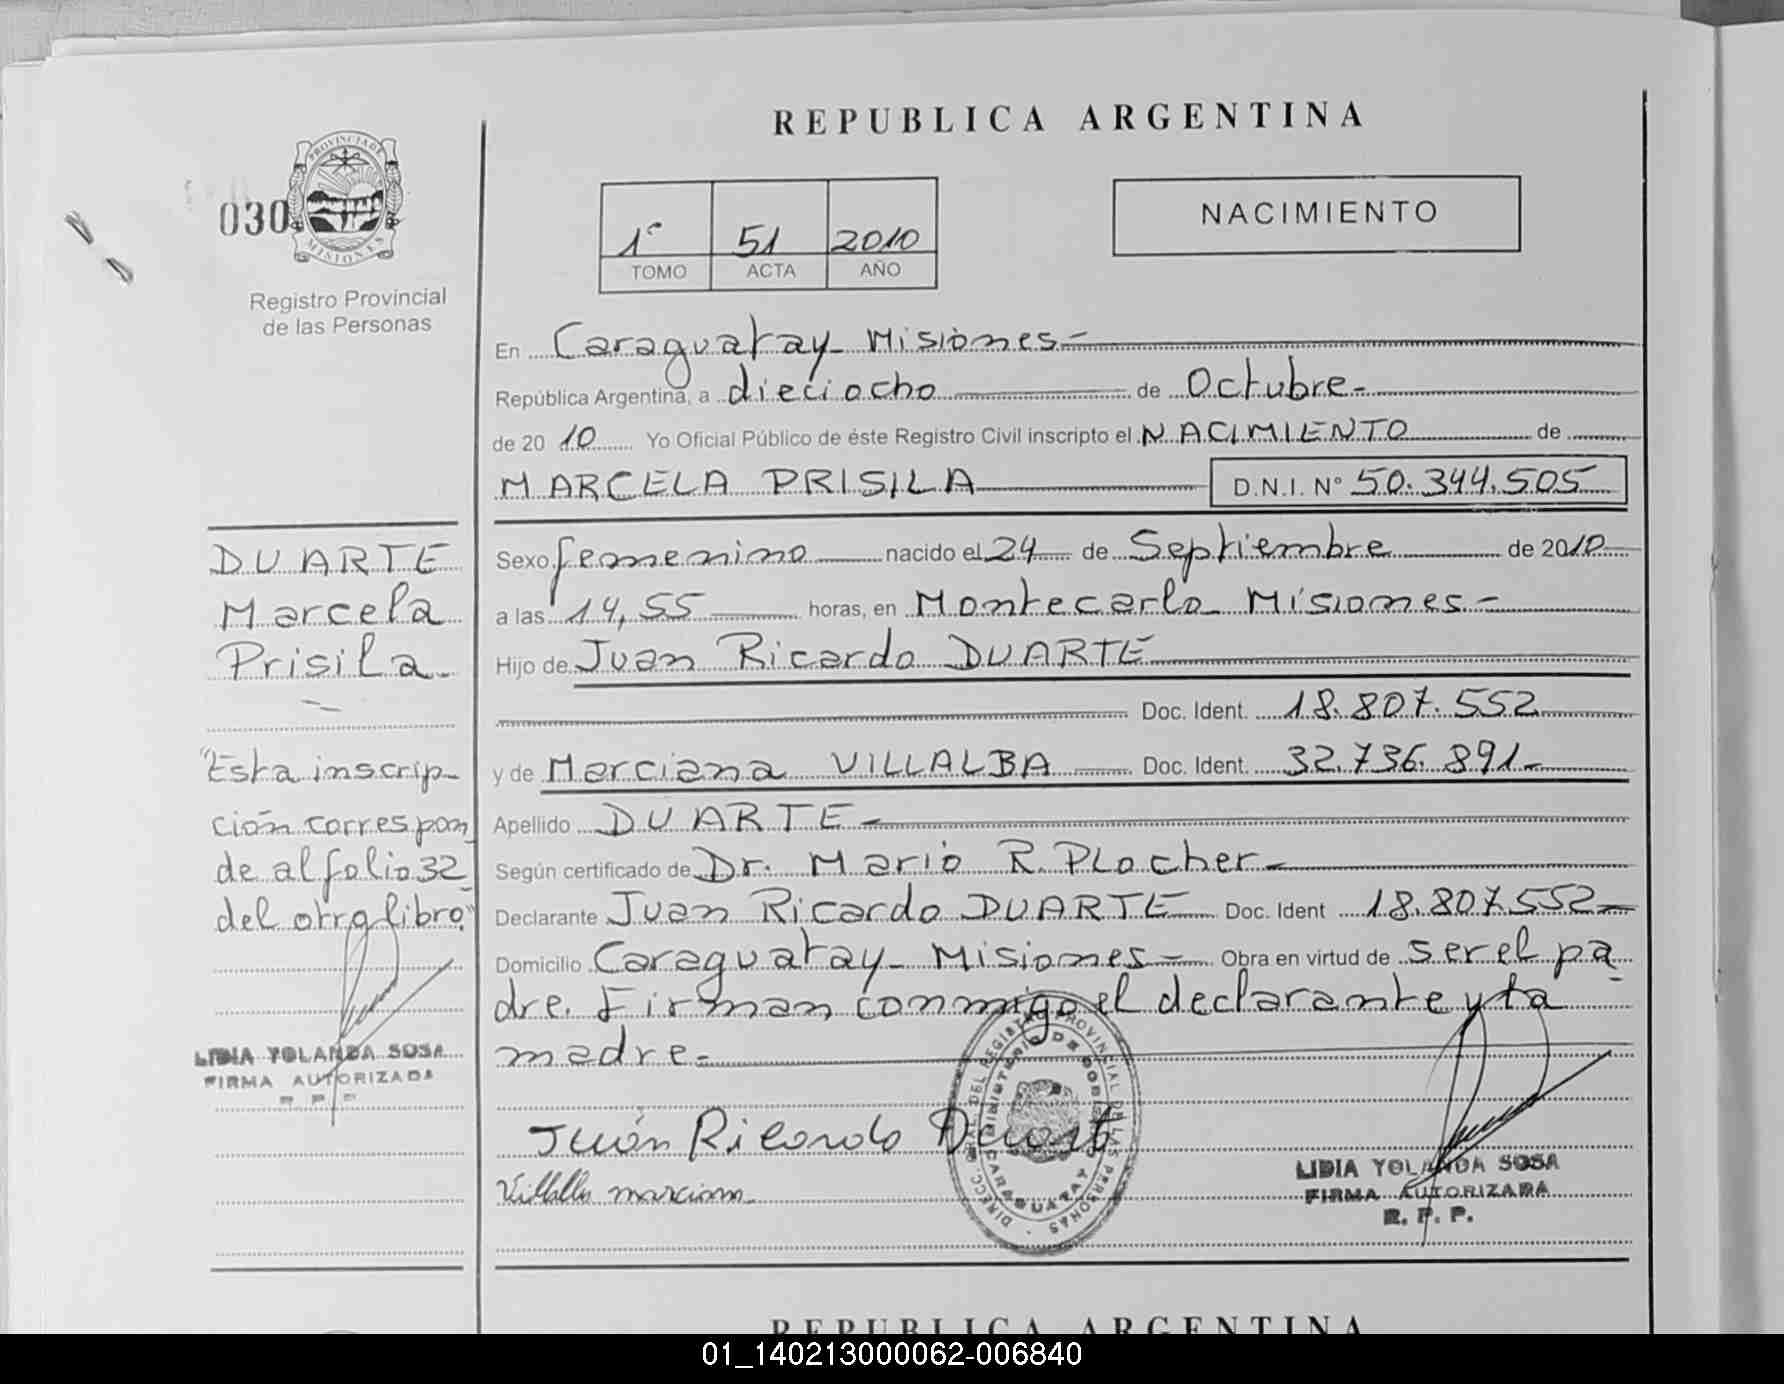 REPUBLICA ARGENTINA
PROVINCIA DE
MISIONES
030
Registro Provincial
de las Personas
1º 51 2010
TOMO ACTA AÑO
NACIMIENTO
En Caraguatay Misiones-
República Argentina, a dieciocho de Octubre-
de 2010 Yo Oficial Público de éste Registro Civil inscripto el NACIMIENTO de
MARCELA PRISILA D.N.I. Nº 50.344.505
Sexo femenino nacido el 24 de Septiembre de 2010
a las 14,55 horas, en Montecarlo Misiones-
Hijo de Juan Ricardo DUARTE
Doc. Ident. 18.807.552
y de Marciana VILLALBA Doc. Ident. 32.736.891-
Apellido DUARTE-
Según certificado de Dr. Mario R. Plocher-
Declarante Juan Ricardo DUARTE Doc. Ident 18.807.552-
Domicilio Caraguatay- Misiones- Obra en virtud de ser el pa
dre. Firman conmigo el declarante y la
madre-
Juan Ricardo Duarte
Villalba marciana
DIRECC. GRAL. DEL REGISTRO PROVINCIAL DE LAS PERSONAS
MINISTERIO DE GOBIERNO
CARAGUATAY
LIDIA YOLANDA SOSA
FIRMA AUTORIZADA
R. P. P.
DUARTE
Marcela
Prisila-
"Esta inscrip-
ción correspon
de al folio 32
del otro libro."
LIDIA YOLANDA SOSA
FIRMA AUTORIZADA
R P P
REPUBLICA ARGENTINA
01_140213000062-006840